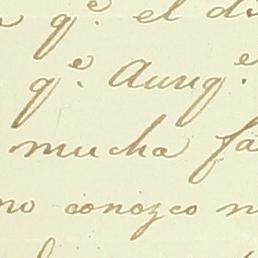 qᵉ. el di
qᵉ. Aunqᵉ.
mucha fa
no conozco n